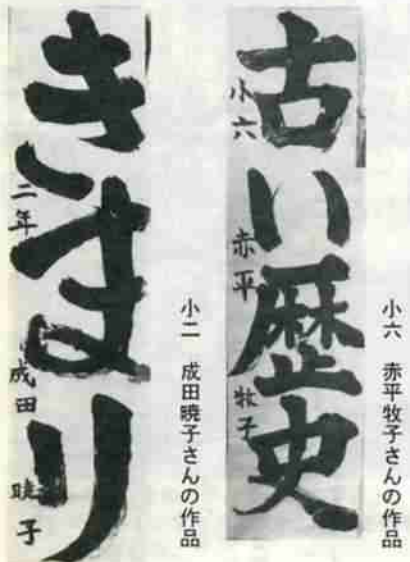 小六 赤平牧子さんの作品
古い歴史
小六 赤平 牧子
小二 成田暁子さんの作品
きまり
二年 成田 暁子